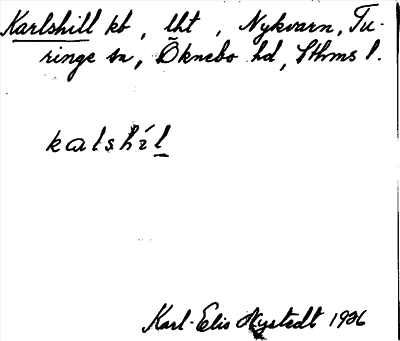 Karlshill kb, lht, Nykvarn, Tu-
ringe sn, Öknebo hd, Sthms l.
kalshíl
Karl-Elis Nystedt 1926